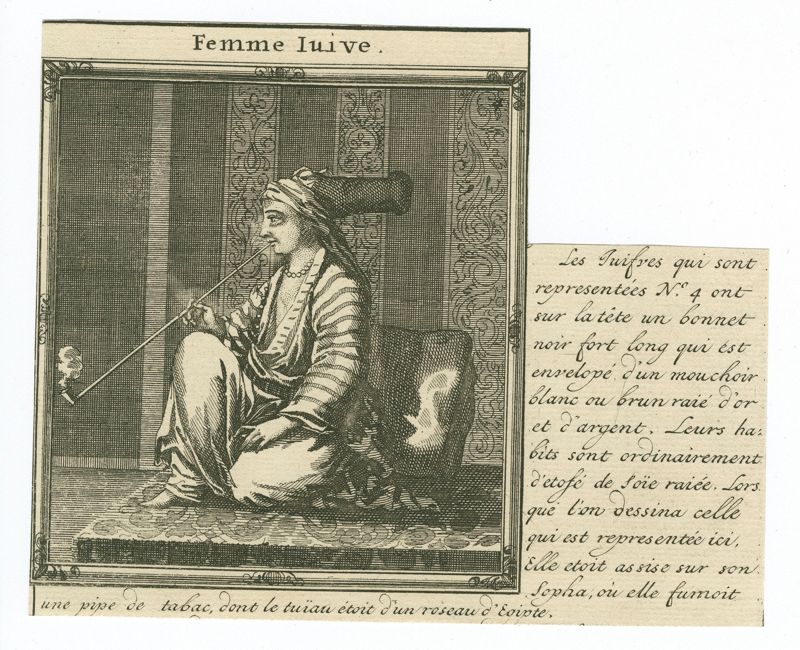 Femme Iuive.
Les Juifves qui sont
representées N.º 4 ont
sur la tête un bonnet
noir fort long qui est
envelopé d'un mouchoir
blanc ou brun raié d'or
et d'argent. Leurs ha:
bits sont ordinairement
d'etofé de soïe raiée. Lors
que l'on dessina celle
qui est representée ici,
Elle etoit assise sur son
Sopha, où elle fumoit
une pipe de tabac, dont le tuïau étoit d'un roseau d'Egipte.